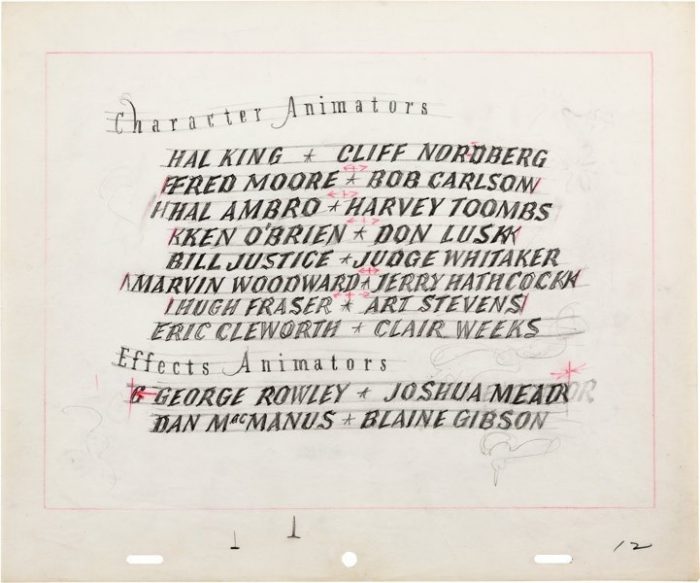 Character Animators
HAL KING ★ CLIFF NORDBERG
FRED MOORE ★ BOB CARLSON
HAL AMBRO ★ HARVEY TOOMBS
KEN O'BRIEN ★ DON LUSK
BILL JUSTICE ★ JUDGE WHITAKER
MARVIN WOODWARD ★ JERRY HATHCOCK
HUGH FRASER ★ ART STEVENS
ERIC CLEWORTH ★ CLAIR WEEKS
Effects Animators
GEORGE ROWLEY ★ JOSHUA MEADOR
DAN MacMANUS ★ BLAINE GIBSON
12